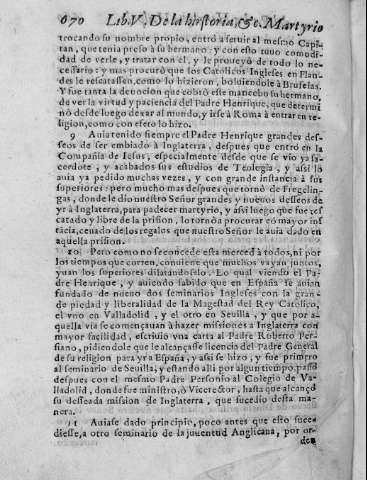 670 Lib. V. De la historia, &c. Martyrio
trocando su nombre propio, entrò a seruir al mesmo Capi-
tan, que tenia preso à su hermano: y con esto tuuo comodi-
dad de verle, y tratar con el, y le proueyò de todo lo ne-
cessario: y mas procurò que los Catolicos Ingleses en Flan-
des le rescatassen, como lo hizieron, boluiendole à Bruselas.
Y fue tanta la deuocion que cobrò este mancebo su hermano,
de ver la virtud y paciencia del Padre Henrique, que determi
nò desde luego dexar al mundo, y irse a Roma à entrar en re-
ligion, como con efeto lo hizo.
9 Auia tenido siempre el Padre Henrique grandes des-
seos de ser embiado à Inglaterra, despues que entrò en la
Compañia de Iesus, especialmente desde que se vio ya sa-
cerdote, y acabados sus estudios de Teologia, y assi lo
auia ya pedido muchas vezes, y con grande instancia à sus
superiores: pero mucho mas despues que tornò de Fregelin-
gas, donde le dio nuestro Señor grandes y nueuos desseos de
yr à Inglaterra, para padecer martyrio, y assi luego que fue res
catado y libre de la prision, lo tornò a procurar cō mayor ins
tācia, ceuado de los regalos que nuestro Señor le auia dado en
aquella prision.
10 Pero como no se concede esta merced à todos, ni por
los tiempos que corren, conuiene que muchos vayan juntos,
yuan los superiores dilatandoselo. Lo qual viendo el Pa-
dre Henrique, y auiendo sabido que en España se auian
fundado de nueuo dos seminarios Ingleses con la gran-
de piedad y liberalidad de la Magestad del Rey Catolico,
el vno en Valladolid, y el otro en Seuilla, y que por a-
quella via se començauan à hazer missiones a Inglaterra con
mayor facilidad, escriuio vna carta al Padre Roberto Per-
siano, pidiendole que le alcançasse licencia del Padre General
de su religion para yr a España, y assi se hizo, y fue primero
al seminario de Seuilla, y estando alli por algun tiempo, passò
despues con el mesmo Padre Personio al Colegio de Va-
lladolid, donde fue ministro, ò Vicerector, hasta que alcançò
su desseada mision de Inglaterra, que sucedio desta ma-
nera.
11 Auiase dado principio, poco antes que esto suce-
diesse, a otro seminario de la juuentud Anglicana, por or-
den